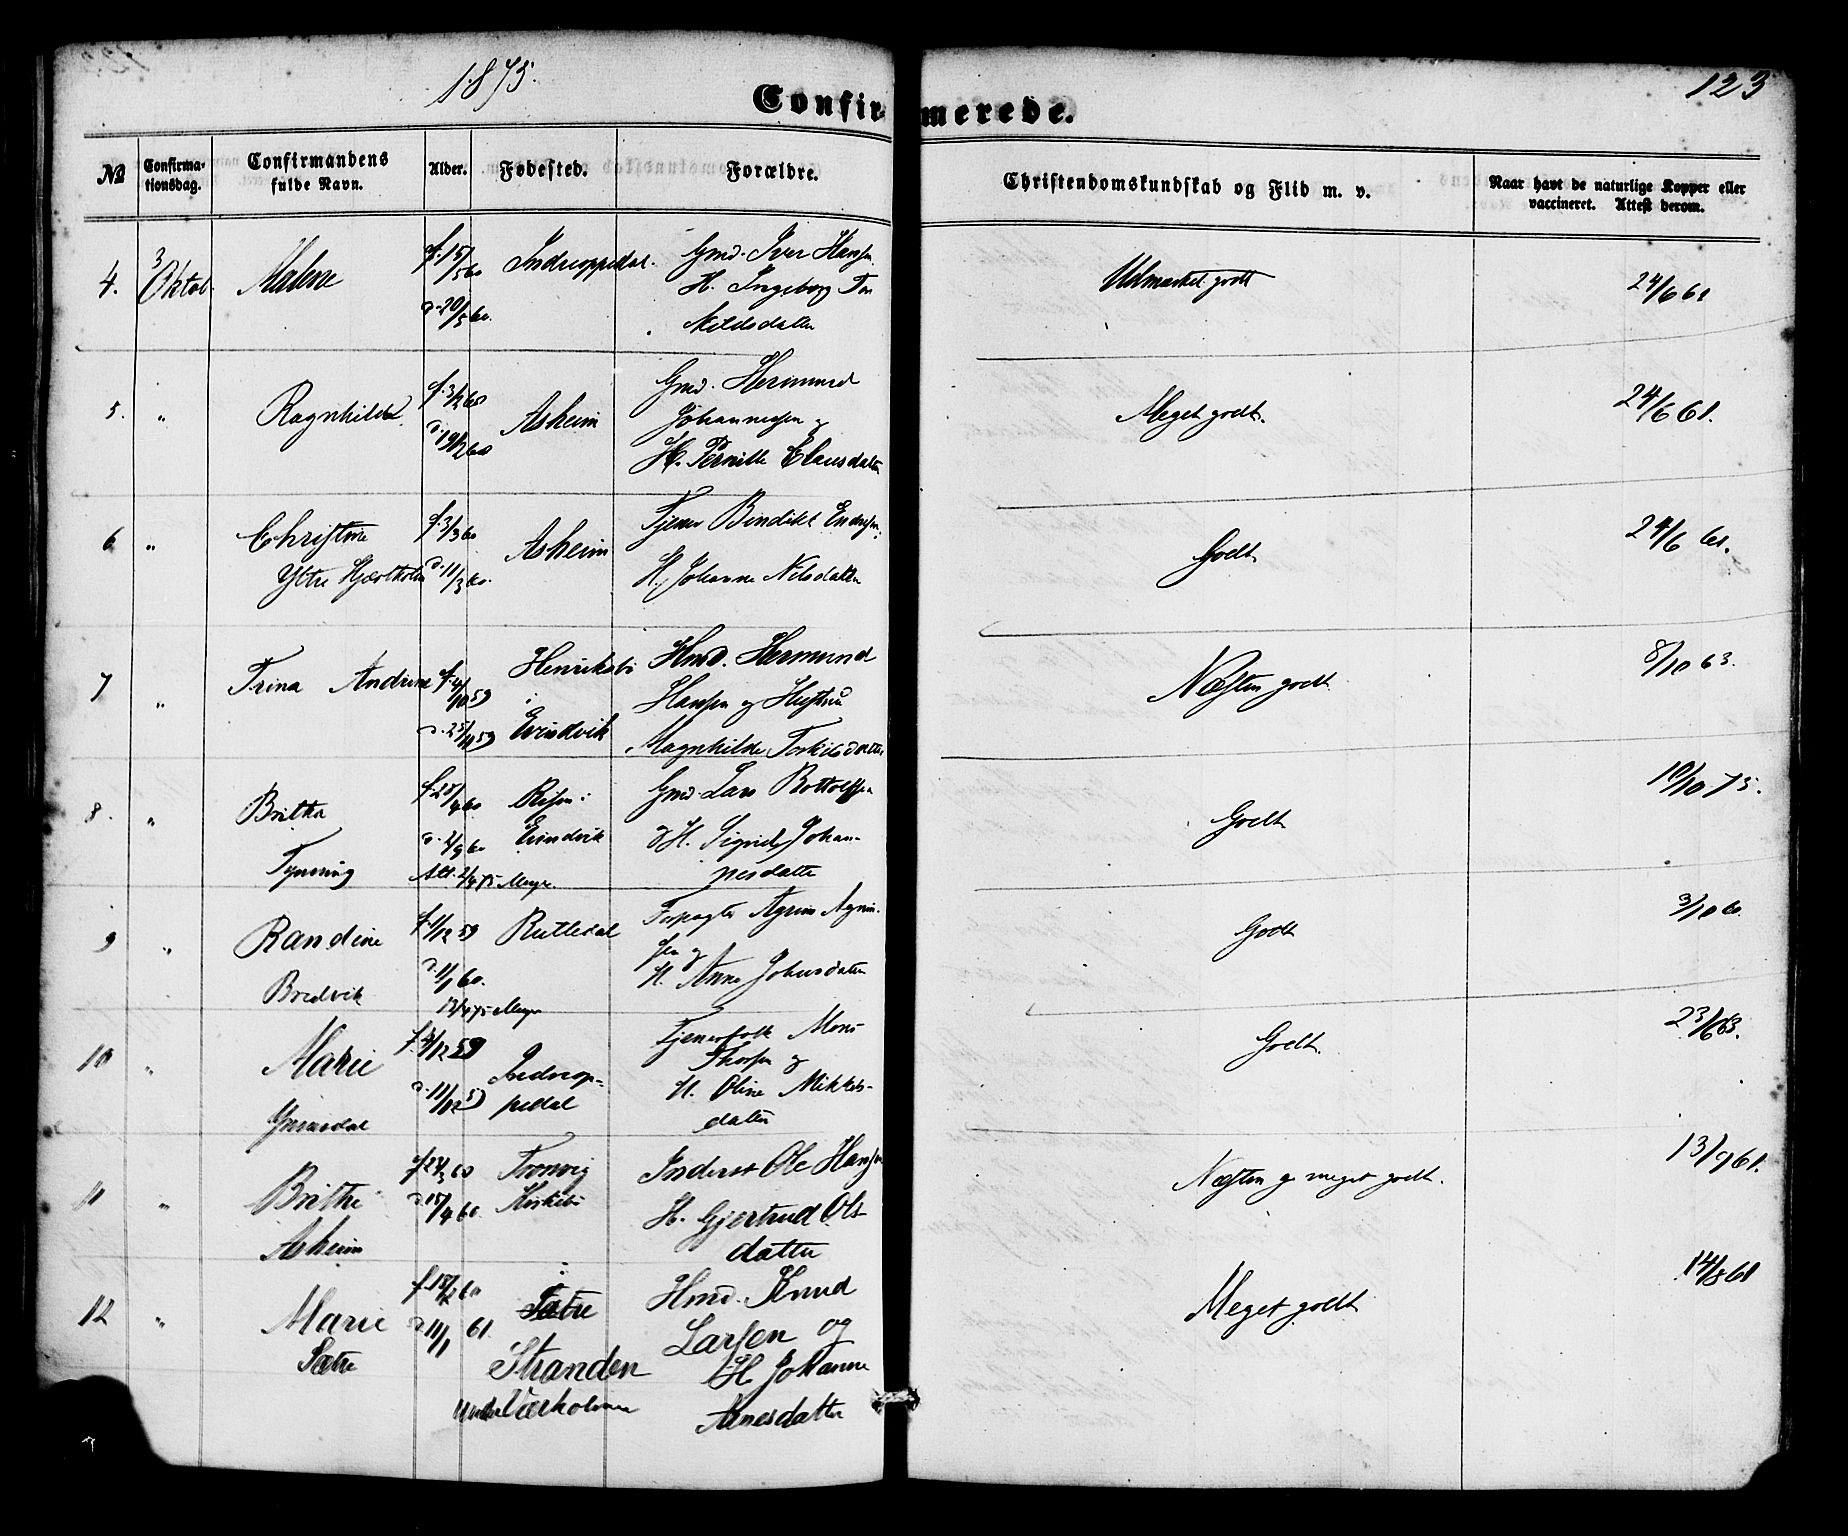 1875.
123
Confirmerede.
№
Confirma-
tionsdag.
Confirmandens
fulde Navn.
Alder.
Fødested.
Forældre.
Christendomskundskab og Flid m. v.
Naar havt de naturlige Kopper eller
vaccineret. Attest derom.
4. 3 Oktob. Malene f. 15/5 60 Indreoppedal. Gmd. Iver Hansen
d. 20/5 60. H. Ingeborg
datter
Udmærket godt 24/6 61
5. " Ragnhilda f. 3/2 60 Asheim Gmd. Hermund
d. 19/2 60 Johannessen og
H. Pernille Clausdatter
Meget godt. 24/6 61.
6 " Christine f. 3/3 60 Asheim Tjener Bendikt Endresen
Ytre Hjortholm d. 11/3 60. H. Johanne Nilsdatter
Godt 24/6 61.
7 " Trina Andrine f. 4/10 59 Henriksbø Hmd. Hermund
i Hansen og Hustru
d. 25/11 59 Evindvik Magnhilde Torkilsdatter
Næsten godt 8/10 63.
8. " Britha f. 28/9 60 Risen i Gmd Lars Bottolfsen
d. 2/9 60 Evindvik og H. Sigrid Johan-
Tynning Att. 2/4 75 nesdatter
Godt 10/10 75.
9 " Randine f. 11/12 59 Rutledal Forpagter Agrim Agrim-
d. 1/1 60. sen og
Bredvik 12/4 75 H. Anna Johnsdatter
Godt 3/10 60.
10 " Marie f. 4/12 59 Indreop- Tjenerfolk Mons
d. 11/12 59 pedal Thorsen og
H. Oline Mikkels-
datter
Godt. 23/6 63.
11 " Brithe f. 24/3 60 Tronvig Inderst Ole Hansen
d. 15/4 60. Kirkebø H. Gjertrud Ols-
Asheim datter
Næsten og meget godt. 13/9 61.
12 " Marie f. 18/2 60 Sætre Hmd. Knud
d. 11/1 61. Larsen og
Sætre Stranden H Johanne
under Værholmen Arnesdatter
Meget godt 14/8 61